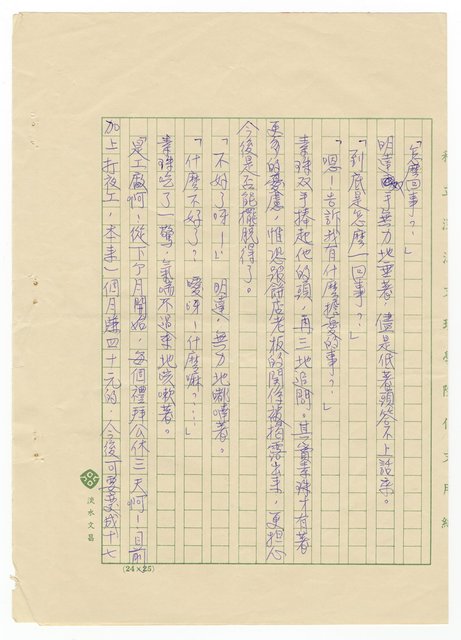 「怎麼回事？」
明達雙手無力地垂著，儘是低著頭答不上話來。
「到底是怎麼一回事？」
「嗯！告訴我有什麼擔憂的事？」
素珠双手捧起他的頭，再三地追問。其實素珠才有著
更多的憂慮，惟恐跟餅店老板的關係被拍露出來，更担心
今後是否能擺脫得了。
「不好了呀！」明達，無力地嘟喃著。
「什麼不好了？噯呀！什麼嘛？」
素珠吃了一驚，氣喘不過來地咳嗽著。
「是工廠啊！從下个月開始，每個禮拜公休三天啊！目前
加上打夜工，本來一個月賺四十元的，今後可要變成十七
私立淡江文理學院作文用紙
淡水文昌
(24×25)